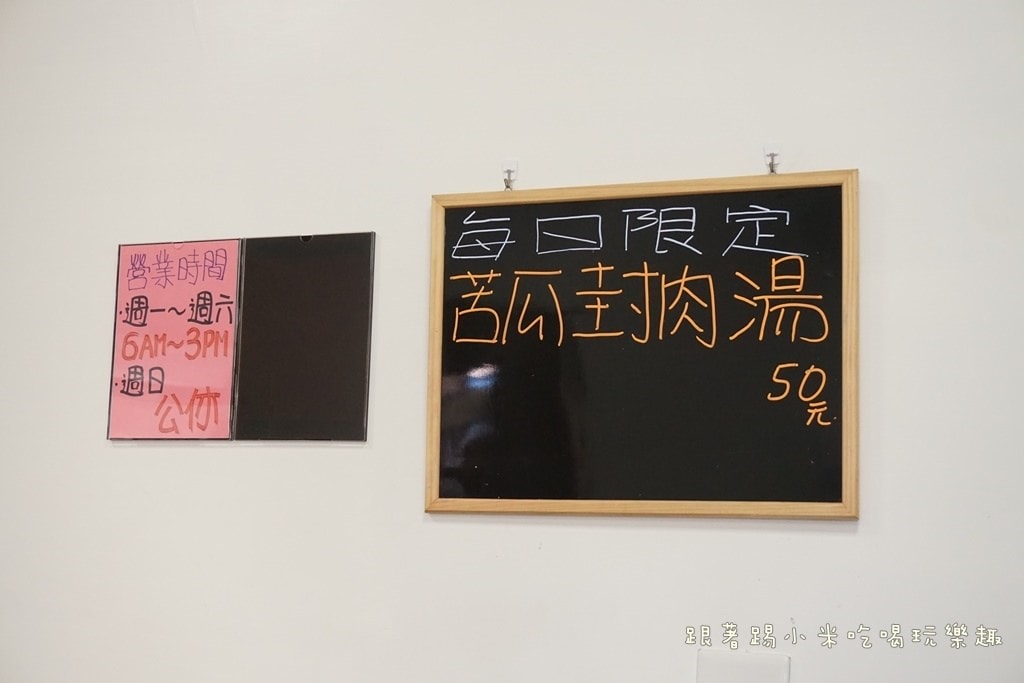 營業時間
·週一~週六
6AM~3PM
·週日
公休
每日限定
苦瓜封肉湯
50
元
跟著踢小米吃喝玩樂趣